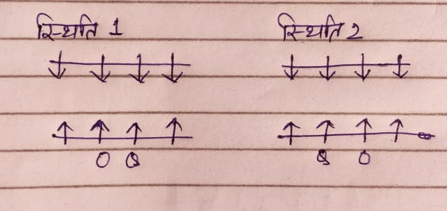 स्थिति 1
स्थिति 2
↓ ↓ ↓ ↓
↓ ↓ ↓ ↓
↑ ↑ ↑ ↑
↑ ↑ ↑ ↑
O Q
Q O